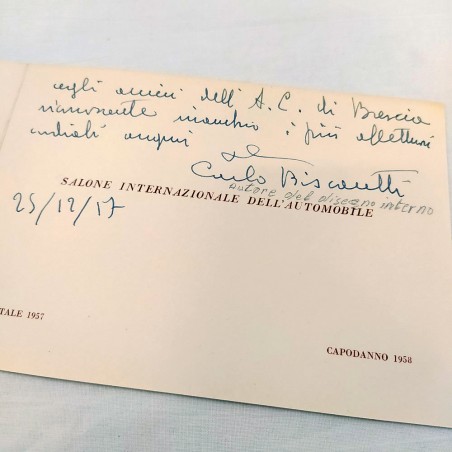 agli amici dell'A.C. di Brescia
riconoscente i più affettuosi
cordiali auguri
Carlo Biscaretti
autore del disegno interno
SALONE INTERNAZIONALE DELL'AUTOMOBILE
25/12/57
TALE 1957
CAPODANNO 1958